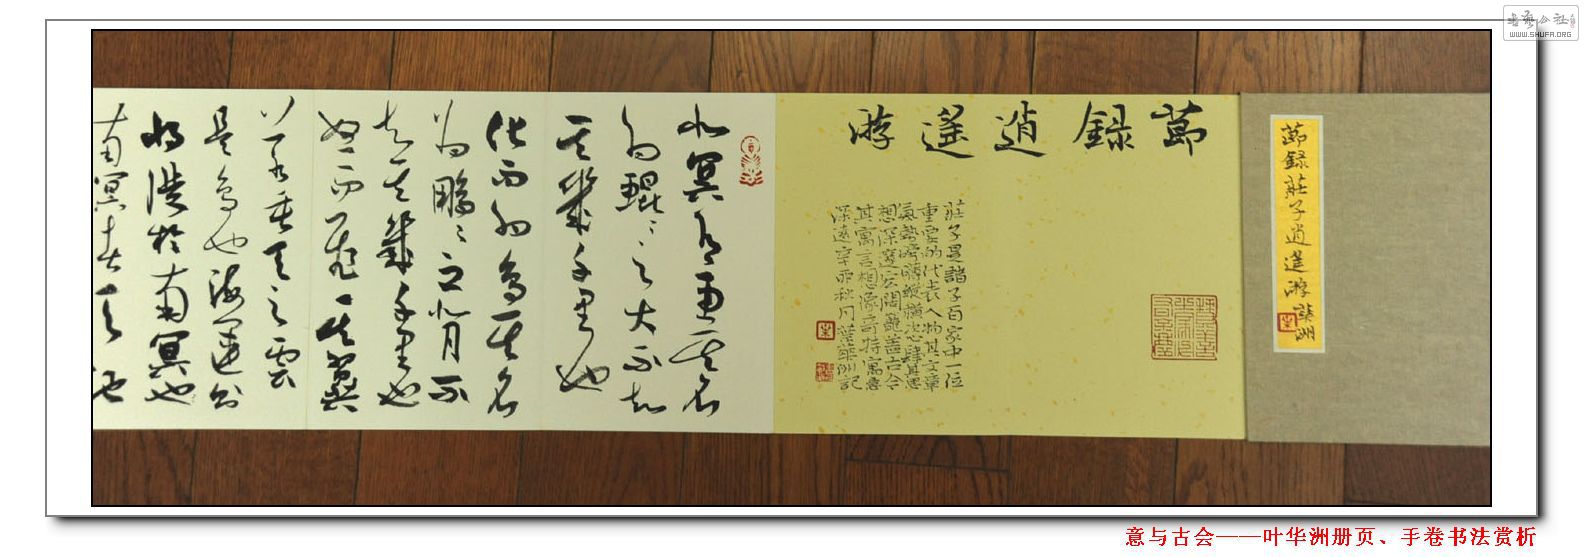 書藝公社
WWW.SHUFA.ORG
節録莊子逍遥游 華洲
節録逍遥游
莊子是諸子百家中一位
重要的代表人物其文章
氣勢磅礴縱橫恣肆其思
想深邃宏闊籠蓋古今
其寓言想像奇特寓意
深遠辛卯秋月葉華洲記
北冥有魚其名
為鯤〻之大不知
其幾千里也
化而為鳥其名
為鵬〻之背不
知其幾千里也
怒而飛其翼
若垂天之雲
是鳥也海運則
將徙於南冥也
南冥者天池
意与古会——叶华洲册页、手卷书法赏析